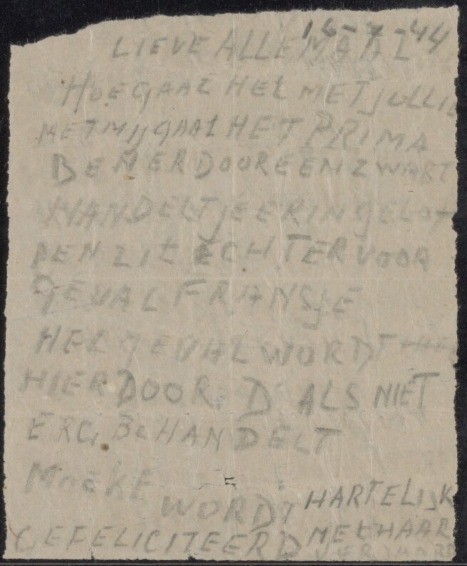 16-7-44
LIEVE ALLEMAAL
HOE GAAT HET MET JULLIE
MET MIJ GAAT HET PRIMA
BEN ER DOOR EEN ZWART
HANDELTJE ERIN GELO
PEN ZIT ECHTER VOOR
GEVAL FRANSJE
HET GEVAL WORDT
HIERDOOR. D ALS NIET
ERG BEHANDELT
MOEKE
WORDT HARTELIJK
GEFELICITEERD MET HAAR